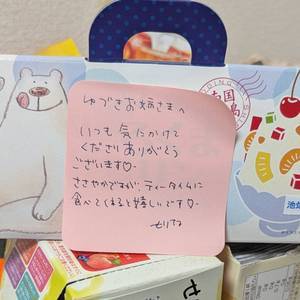 ゆづきお姉さまへ
いつも気にかけて
くださりありがとう
ございます♡
ささやかですが、ティータイムに
食べてくれると嬉しいです♡
南国